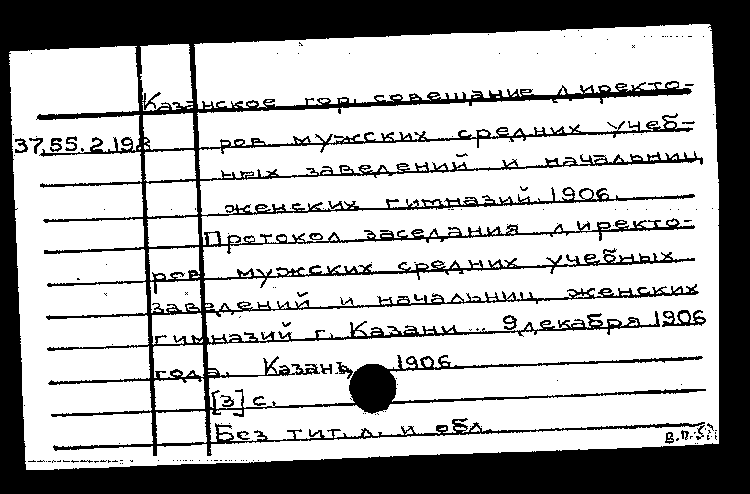 Казанское гор. совещание директо-
37.55.2.198 ров мужских средних учеб-
ных заведений и начальниц
женских гимназий. 1906.
Протокол заседания директо-
ров мужских средних учебных
заведений и начальниц женских
гимназий г. Казани... 9 декабря 1906
года. Казань, 1906.
[3] с.
Без тит. л. и обл.
В.П.